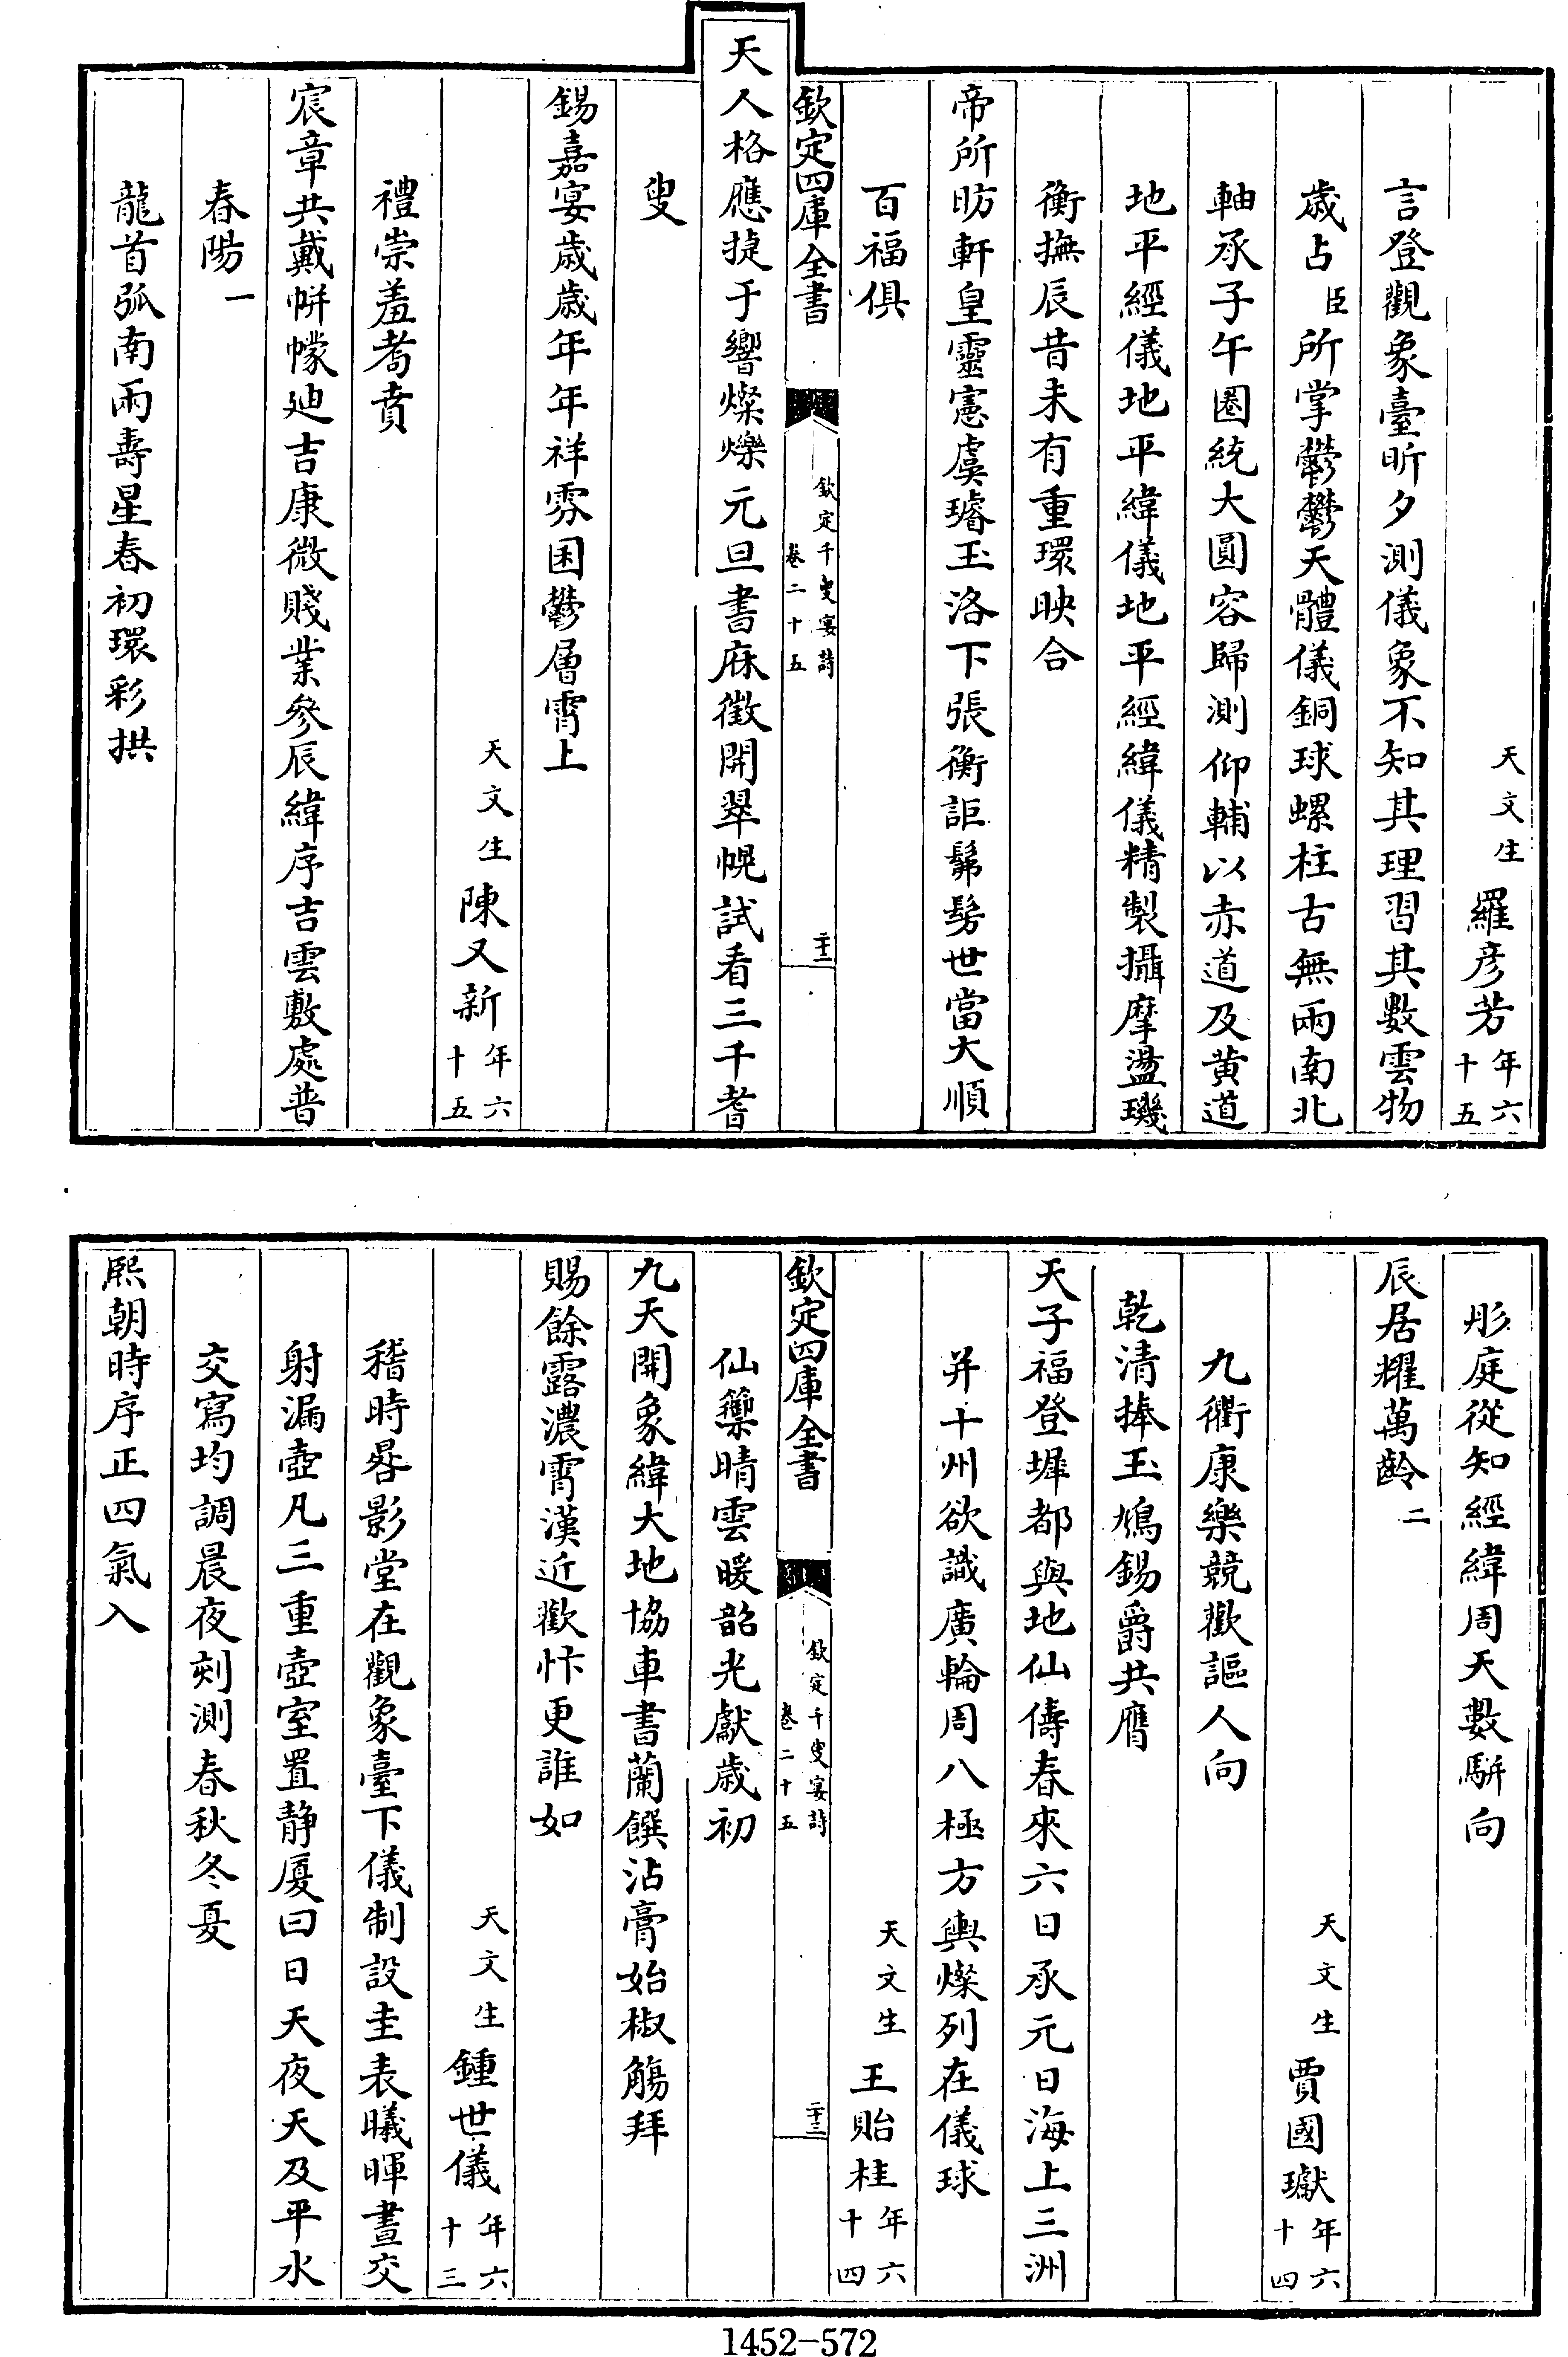 天文生羅彦芳年六十五
言登觀象臺昕夕測儀象不知其理習其數雲物
歲占臣所掌鬱鬱天體儀銅球螺柱古無兩南北
軸承子午圈統大圓容歸測仰輔以赤道及黄道
地平經儀地平緯儀地平經緯儀精製攝摩盪璣
衡撫辰昔未有重環映合
帝所昉軒皇靈憲虞璿玉洛下張衡詎髴髣世當大順
百福俱
欽定四庫全書
欽定千叟宴詩
卷二十五
二十二
天人格應捷于響燦爍元旦書庥徵開翠幌試看三千耆
叟
錫嘉宴歲歲年年祥雰囷鬱層霄上
天文生陳又新年六十五
禮崇羞耇賁
宸章共戴帡幪廸吉康微賤業參辰緯序吉雲敷處普
春陽一
龍首弧南兩壽星春初環彩拱
彤庭從知經緯周天數駢向
辰居耀萬齡二
天文生賈國瓛年六十四
九衢康樂競歡謳人向
乾清捧玉鳩錫爵共膺
天子福登墀都與地仙儔春來六日承元日海上三洲
并十州欲識廣輪周八極方輿燦列在儀球
天文生王貽桂年六十四
欽定四庫全書
欽定千叟宴詩
卷二十五
二十三
仙籞晴雲暖韶光獻歲初
九天開象緯大地協車書蘭饌沾膏始椒觴拜
賜餘露濃霄漢近歡忭更誰如
天文生鍾世儀年六十三
稽時晷影堂在觀象臺下儀制設圭表曦暉晝交
射漏壺凡三重壺室置静厦曰日天夜天及平水
交寫均調晨夜刻測春秋冬夏
熙朝時序正四氣入
1452-572